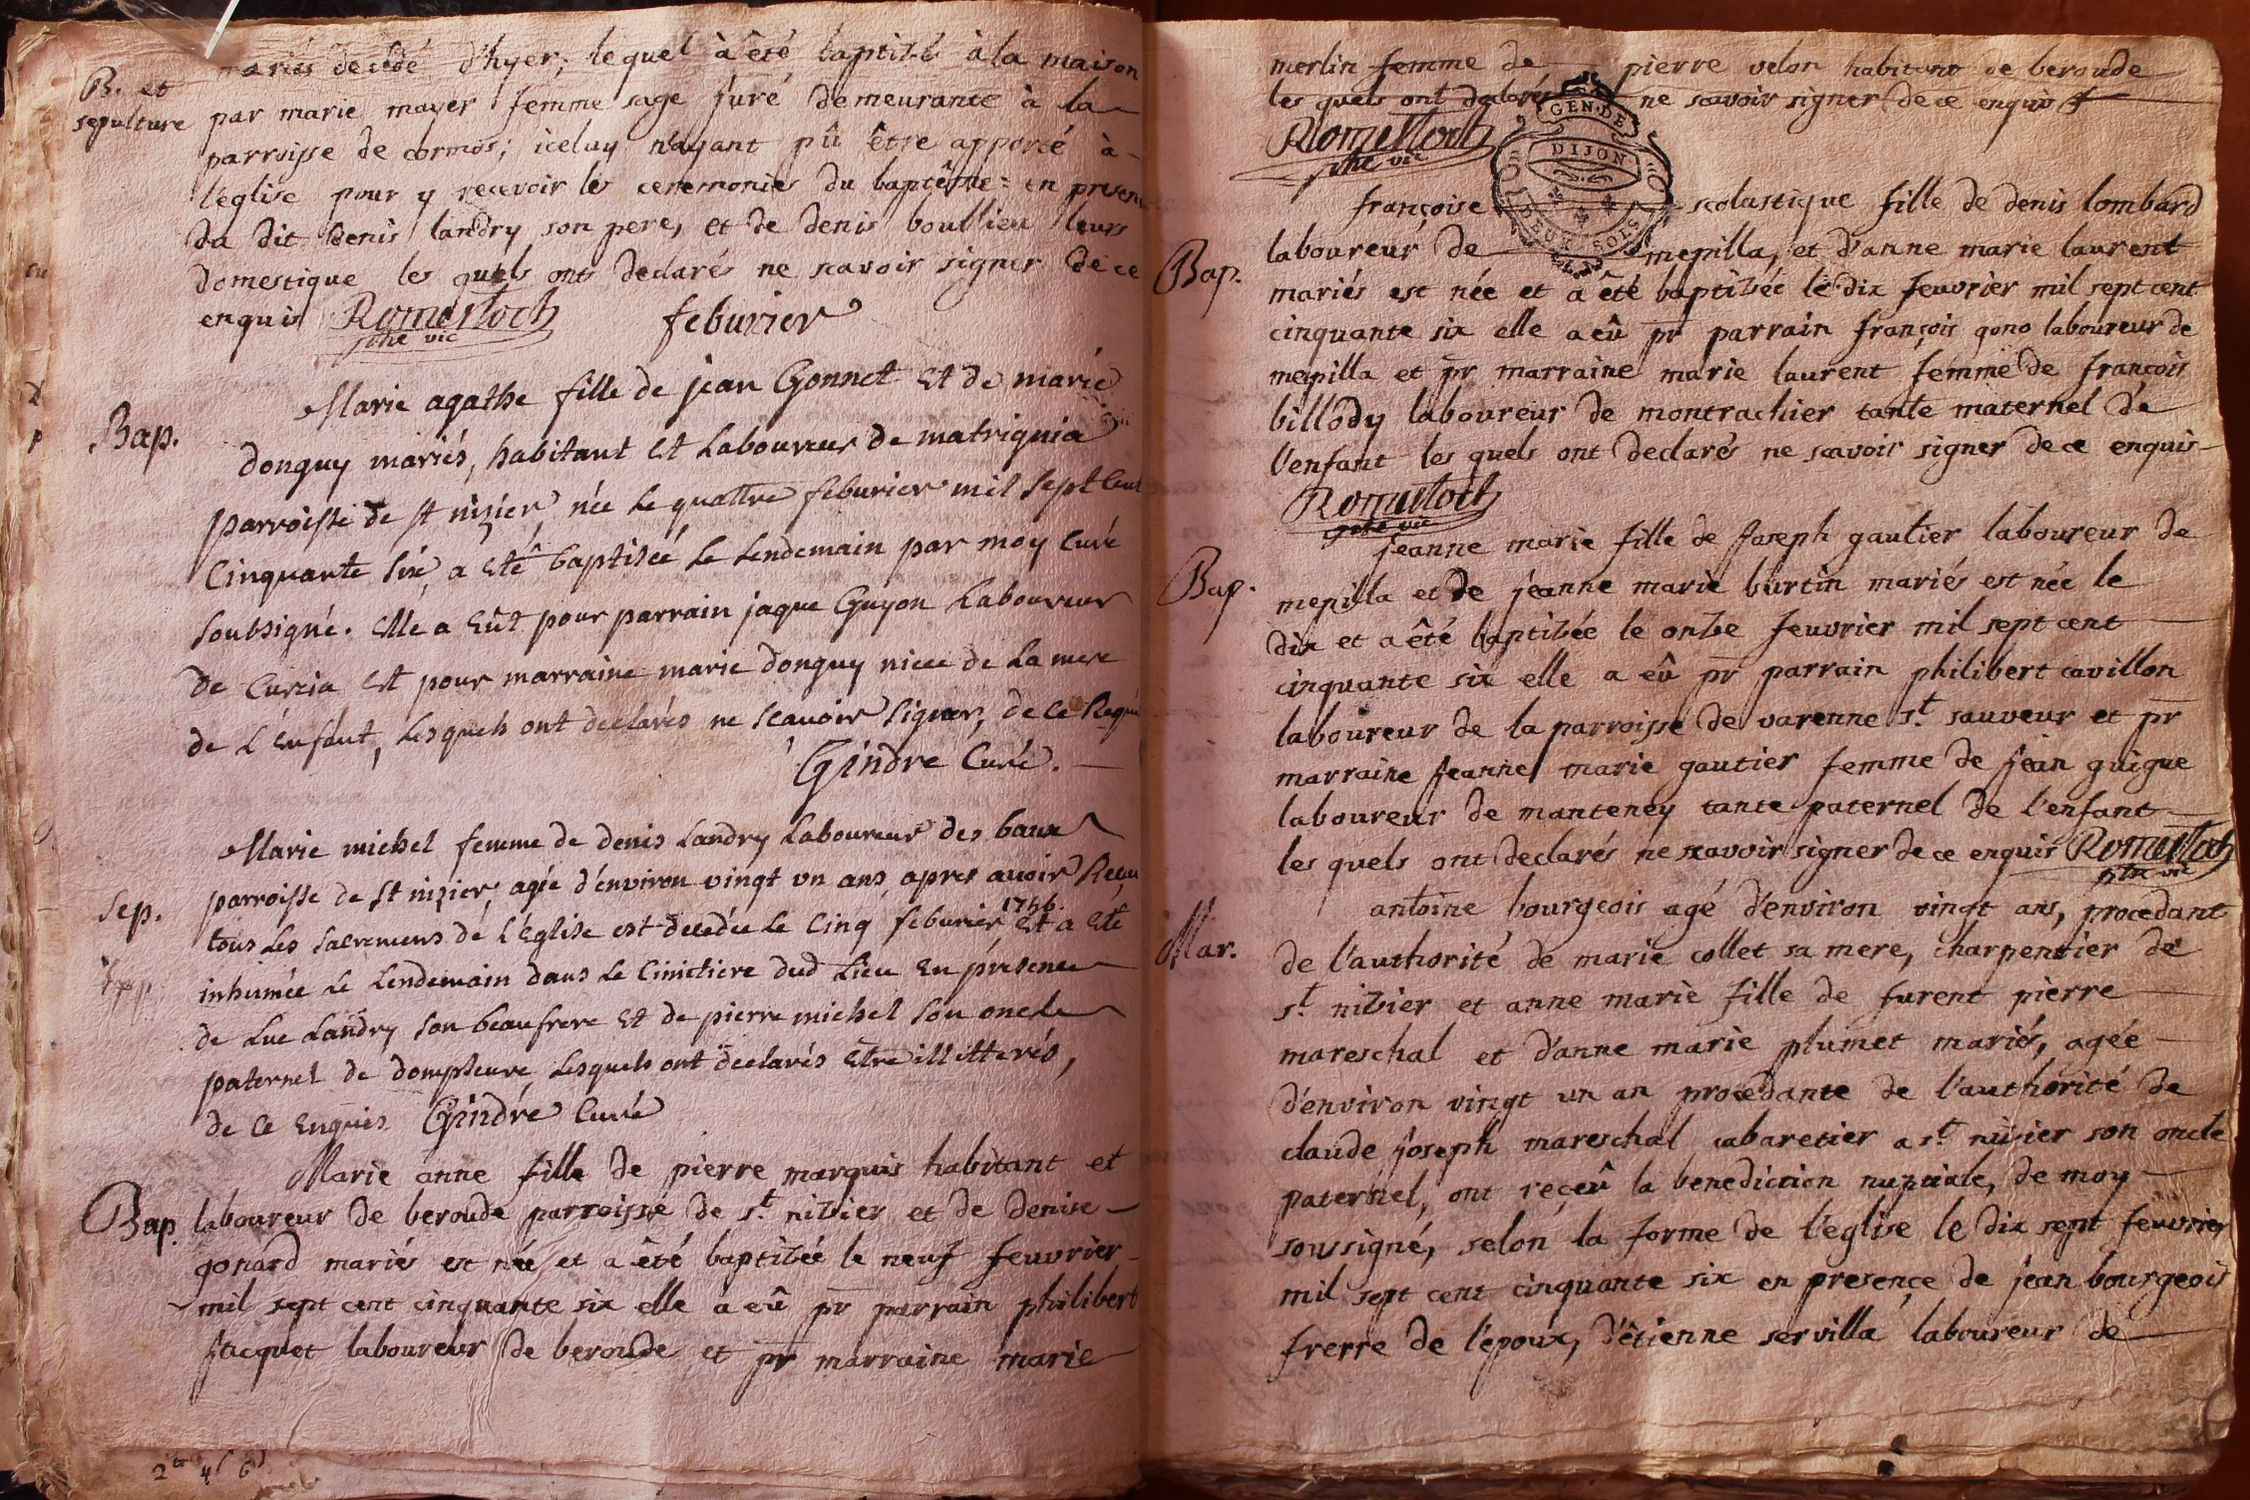 B. et
sepulture
mariés decedé d'hyer; lequel à été baptizé à la maison
par marie mayer femme sage juré demeurante à la
parroisse de cormos; iceluy n'ayant pû être apporté à
l'eglise pour y recevoir les ceremonies du baptême: en presen
du dit denis landry son pere, et de denis boullieu leurs
domestique les quels ont declarés ne scavoir signer de ce
enquis Romestoch
ptre vic
feburier
Bap.
Marie agathe fille de jean Gonnet Et de marie
donguy mariés, habitant Et Laboureur de matrignia
parroisse de st nizier, née Le quattre feburier mil sept Cent
Cinquante six, a Eté baptisée Le Lendemain par moy Curé
soubsigné. Elle a Eût pour parrain jaque Guyon Laboureur
de Curcia Et pour marraine marie donguy niece de La mere
de L'Enfant, Lesquels ont declarés ne scavoir signer, de ce Requi
Gindre Curé.
Sep.
Marie michel femme de denis Landry Laboureur des baux
parroisse de St nizier, agée d'environ vingt un ans, apres avoir Reçu
tous Les sacremens de L'Eglise est decedée Le Cinq feburier 1756. Et a Eté
inhumée Le Lendemain dans Le Cimetiere dud Lieu En presence
de Luc Landry son beaufrere Et de pierre michel son oncle
paternel de dompseure, Lesquels ont declarés Etre illitterés,
de Ce Enquis Gindre Curé
Bap.
Marie anne fille de pierre marquis habitant et
laboureur de beroude parroisse de st. nizier et de denise
gonard mariés est née et a êté baptizée le neuf feuvrier
mil sept cent cinquante six elle a eû pr parrain philibert
jacquet laboureur de beroude et pr marraine marie
2 4 6
merlin femme de pierre velon habitant de beroude
les quels ont declarés ne scavoir signer de ce enquis
Romestoch
ptre vic
GEN. DE
DIJON
DEUX SOLS
Bap.
françoise scolastique fille de denis lombard
laboureur de mepilla, et d'anne marie laurent
mariés est née et a êté baptizée le dix feuvrier mil sept cent
cinquante six elle a eû pr parrain françois gono laboureur de
mepilla et pr marraine marie laurent femme de françois
billody laboureur de montrachier tante maternel de
l'enfant les quels ont declarés ne scavoir signer de ce enquis
Romestoch
ptre vic
Bap.
jeanne marie fille de Joseph gautier laboureur de
mepilla et de jeanne marie burtin mariés est née le
dix et a êté baptizée le onze feuvrier mil sept cent
cinquante six elle a eû pr parrain philibert cavillon
laboureur de la parroisse de varenne st. sauveur et pr
marraine Jeanne marie gautier femme de jean guigue
laboureur de manteney tante paternel de l'enfant
les quels ont declarés ne scavoir signer de ce enquis Romestoch
ptre vic
Mar.
antoine bourgeois agé d'environ vingt ans, procedant
de l'authorité de marie collet sa mere, charpentier de
st. nizier et anne marie fille de furent pierre
mareschal et d'anne marie plumet mariés, agée
d'environ vingt un an procedante de l'authorité de
claude joseph mareschal cabaretier a st. nizier son oncle
paternel, ont reçeû la benediction nuptiale, de moy
soussigné, selon la forme de l'eglise le dix sept feuvrier
mil sept cent cinquante six en presence de jean bourgeois
frerre de l'epoux, d'étienne servilla laboureur de